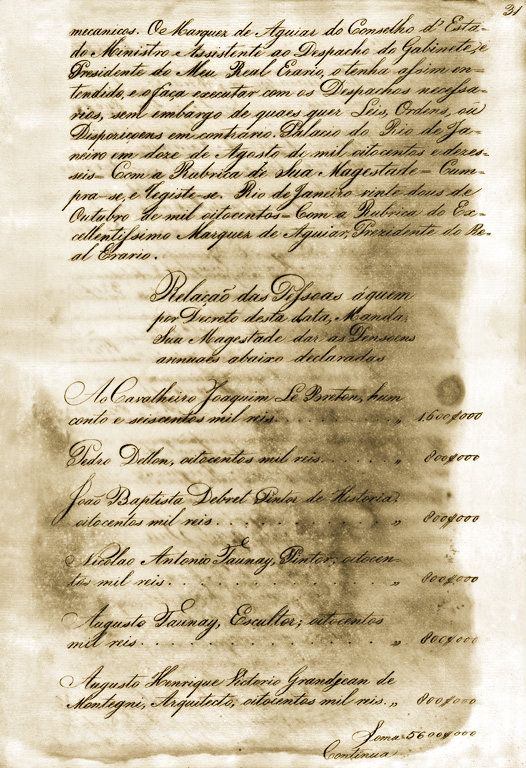 31
mecanicos. O Marquez de Aguiar do Conselho d'Esta-
do Ministro Assistente ao Despacho do Gabinete, e
Prezidente do Meu Real Erario, o tenha assim en-
tendido, e o faça executar com os Despachos necessa-
rios, sem embargo de quaes quer Leis, Ordens, ou
Dispoziçoens em contrario. Palacio do Rio de Ja-
neiro em doze de Agosto de mil oitocentos e dezes-
seis = Com a Rubrica de Sua Magestade = Cum-
pra-se, e registe-se. Rio de Janeiro vinte dous de
Outubro de mil oitocentos = Com a Rubrica do Ex-
cellentissimo Marquez de Aguiar, Prezidente do Re-
al Erario.
Relação das Pessoas áquem
por Decreto desta data, Manda
Sua Magestade dar as Pensoens
annuaes abaixo declaradas
Ao Cavalheiro Joaquim Le Breton, hum
conto e seiscentos mil reis . . . . . . . . . „ 1.600$000
Pedro Dellon, oitocentos mil reis . . . . . „ 800$000
João Baptista Debret Pintor de Historia,
oitocentos mil reis . . . . . . . . . . . „ 800$000
Nicolao Antonio Taunay, Pintor, oitocen-
tos mil reis . . . . . . . . . . . . „ 800$000
Augusto Taunay, Escultor, oitocentos
mil reis . . . . . . . . . . . . . „ 800$000
Augusto Henrique Victorio Grandjean de
Montegni, Arquitecto, oitocentos mil reis . „ 800$000
Soma 5600$000
Continua